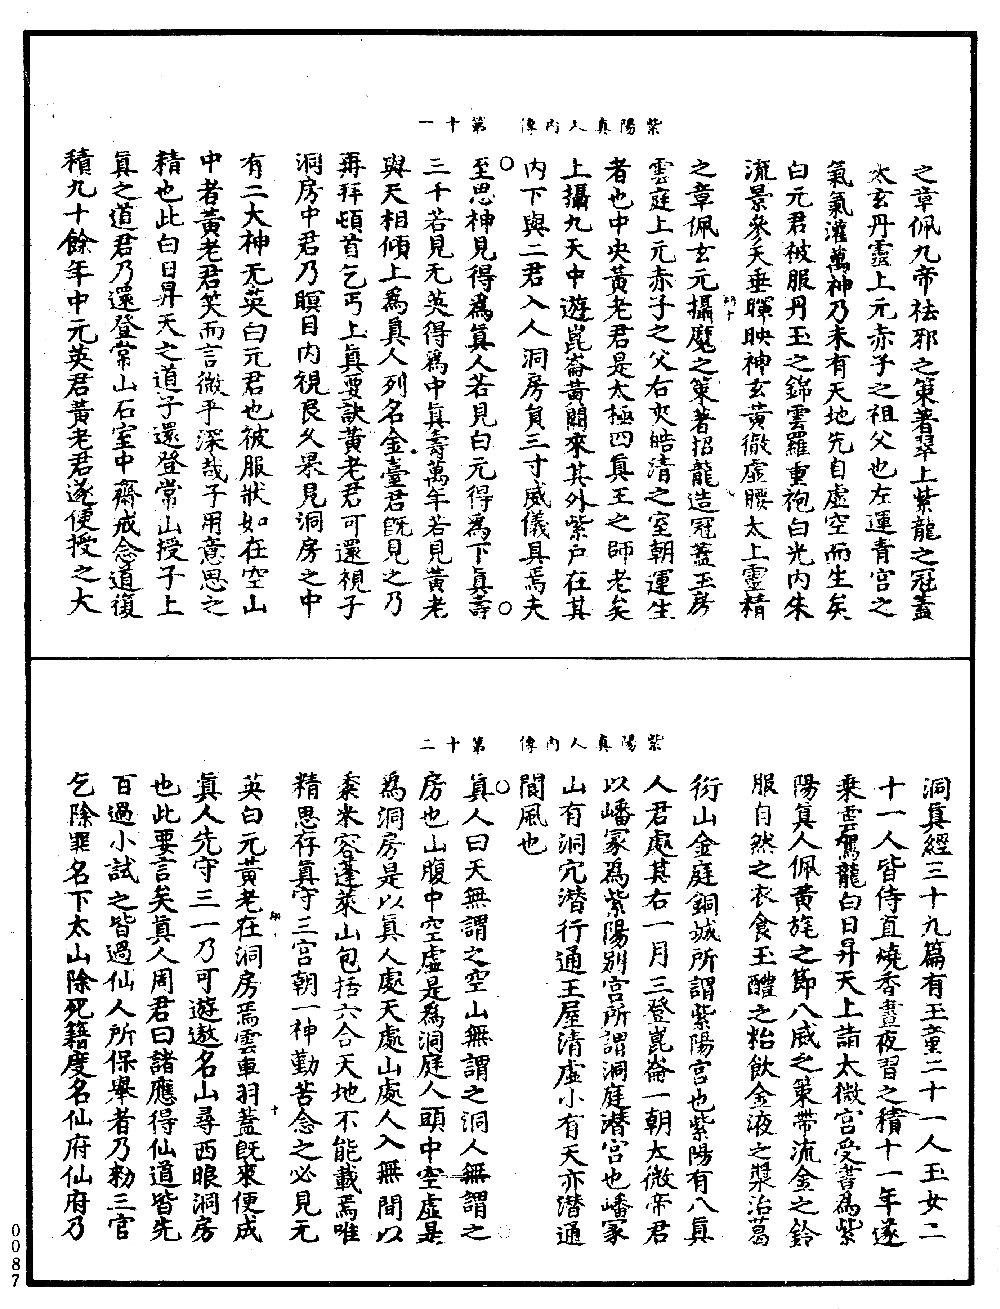 紫陽真人內傳　第十一
之章佩九帝祛邪之策著翠上紫龍之冠蓋
太玄丹靈上元赤子之祖父也左運青宮之
氣氣灌萬神乃未有天地先自虛空而生矣
白元君被服丹玉之錦雲羅重袍白光內朱
流景參天垂暉映神玄黃徹虛腰太上靈精
之章佩玄元攝魔之策著招龍造冠蓋玉房
雲庭上元赤子之父右夾皓清之室朝運生
者也中央黃老君是太極四真王之師老矣
上攝九天中遊崑崙黃闕來其外紫戶在其
內下與二君入人洞房負三寸威儀具焉夫
至思神見得為真人若見白元得為下真壽
三千若見无英得為中真壽萬年若見黃老
與天相傾上為真人列名金臺君旣見之乃
再拜頓首乞丐上真要訣黃老君可還視子
洞房中君乃瞑目內視良久果見洞房之中
有二大神无英白元君也被服狀如在空山
中者黃老君笑而言微乎深哉子用意思之
精也此白日昇天之道子還登常山授子上
真之道君乃還登常山石室中齋戒念道復
積九十餘年中元英君黃老君遂便授之大
紫陽真人內傳　第十二
洞真經三十九篇有玉童二十一人玉女二
十一人皆侍直燒香晝夜習之積十一年遂
乘雲駕龍白日昇天上詣太微宮受書為紫
陽真人佩黃旄之節八威之策帶流金之鈴
服自然之衣食玉醴之粭飲金液之漿治葛
衍山金庭銅城所謂紫陽宮也紫陽有八真
人君處其右一月三登崑崙一朝太微帝君
以嶓冢為紫陽別宮所謂洞庭潛宮也嶓冢
山有洞穴潛行通王屋清虛小有天亦潛通
閬風也
真人曰天無謂之空山無謂之洞人無謂之
房也山腹中空虛是為洞庭人頭中空虛是
為洞房是以真人處天處山處人入無間以
黍米容蓬萊山包括六合天地不能載焉唯
精思存真守三宮朝一神勤苦念之必見无
英白元黃老在洞房焉雲車羽蓋旣來便成
真人先守三一乃可遊遨名山尋西眼洞房
也此要言矣真人周君曰諸應得仙道皆先
百過小試之皆過仙人所保舉者乃勑三官
乞除罪名下太山除死籍度名仙府仙府乃
0087